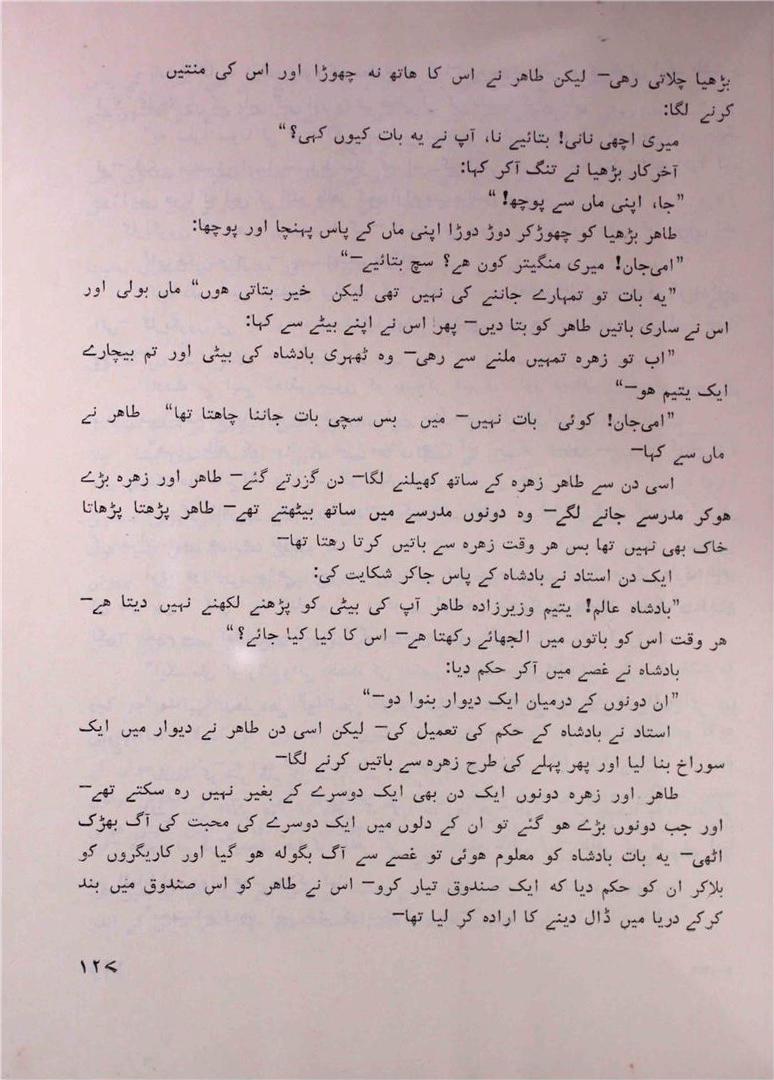 بڑھیا چلاتی رھی— لیکن طاھر نے اس کا ھاتھ نه چھوڑا اور اس کی منتیں
کرنے لگا:
میری اچھی نانی! بتائیے نا، آپ نے یه بات کیوں کہی؟“
آخرکار بڑھیا نے تنگ آکر کہا:
”جا، اپنی ماں سے پوچھ!“
طاھر بڑھیا کو چھوڑکر دوڑ دوڑا اپنی ماں کے پاس پہنچا اور پوچھا:
”امی‌جان! میری منگیتر کون ھے؟ سچ بتائیے—“
”یه بات تو تمہارے جاننے کی نہیں تھی لیکن خیر بتاتی ھوں“ ماں بولی اور
اس نے ساری باتیں طاھر کو بتا دیں— پھر اس نے اپنے بیٹے سے کہا:
”اب تو زھره تمہیں ملنے سے رھی— وه ٹھہری بادشاه کی بیٹی اور تم بیچارے
ایک یتیم ھو—“
”امی‌جان! کوئی بات نہیں— میں بس سچی بات جاننا چاھتا تھا“ طاھر نے
ماں سے کہا—
اسی دن سے طاھر زھره کے ساتھ کھیلنے لگا— دن گزرتے گئے— طاھر اور زھره بڑے
ھوکر مدرسے جانے لگے— وه دونوں مدرسے میں ساتھ بیٹھتے تھے— طاھر پڑھتا پڑھاتا
خاک بھی نہیں تھا بس ھر وقت زھره سے باتیں کرتا رھتا تھا—
ایک دن استاد نے بادشاه کے پاس جاکر شکایت کی:
”بادشاه عالم! یتیم وزیرزاده طاھر آپ کی بیٹی کو پڑھنے لکھنے نہیں دیتا ھے—
ھر وقت اس کو باتوں میں الجھائے رکھتا ھے— اس کا کیا کیا جائے؟“
بادشاه نے غصے میں آکر حکم دیا:
”ان دونوں کے درمیان ایک دیوار بنوا دو—“
استاد نے بادشاه کے حکم کی تعمیل کی— لیکن اسی دن طاھر نے دیوار میں ایک
سوراخ بنا لیا اور پھر پہلے کی طرح زھره سے باتیں کرنے لگا—
طاھر اور زھره دونوں ایک دن بھی ایک دوسرے کے بغیر نہیں ره سکتے تھے—
اور جب دونوں بڑے ھو گئے تو ان کے دلوں میں ایک دوسرے کی محبت کی آگ بھڑک
اٹھی— یه بات بادشاه کو معلوم ھوئی تو غصے سے آگ بگوله ھو گیا اور کاریگروں کو
بلاکر ان کو حکم دیا که ایک صندوق تیار کرو— اس نے طاھر کو اس صندوق میں بند
کرکے دریا میں ڈال دینے کا اراده کر لیا تھا—
۱۲۷